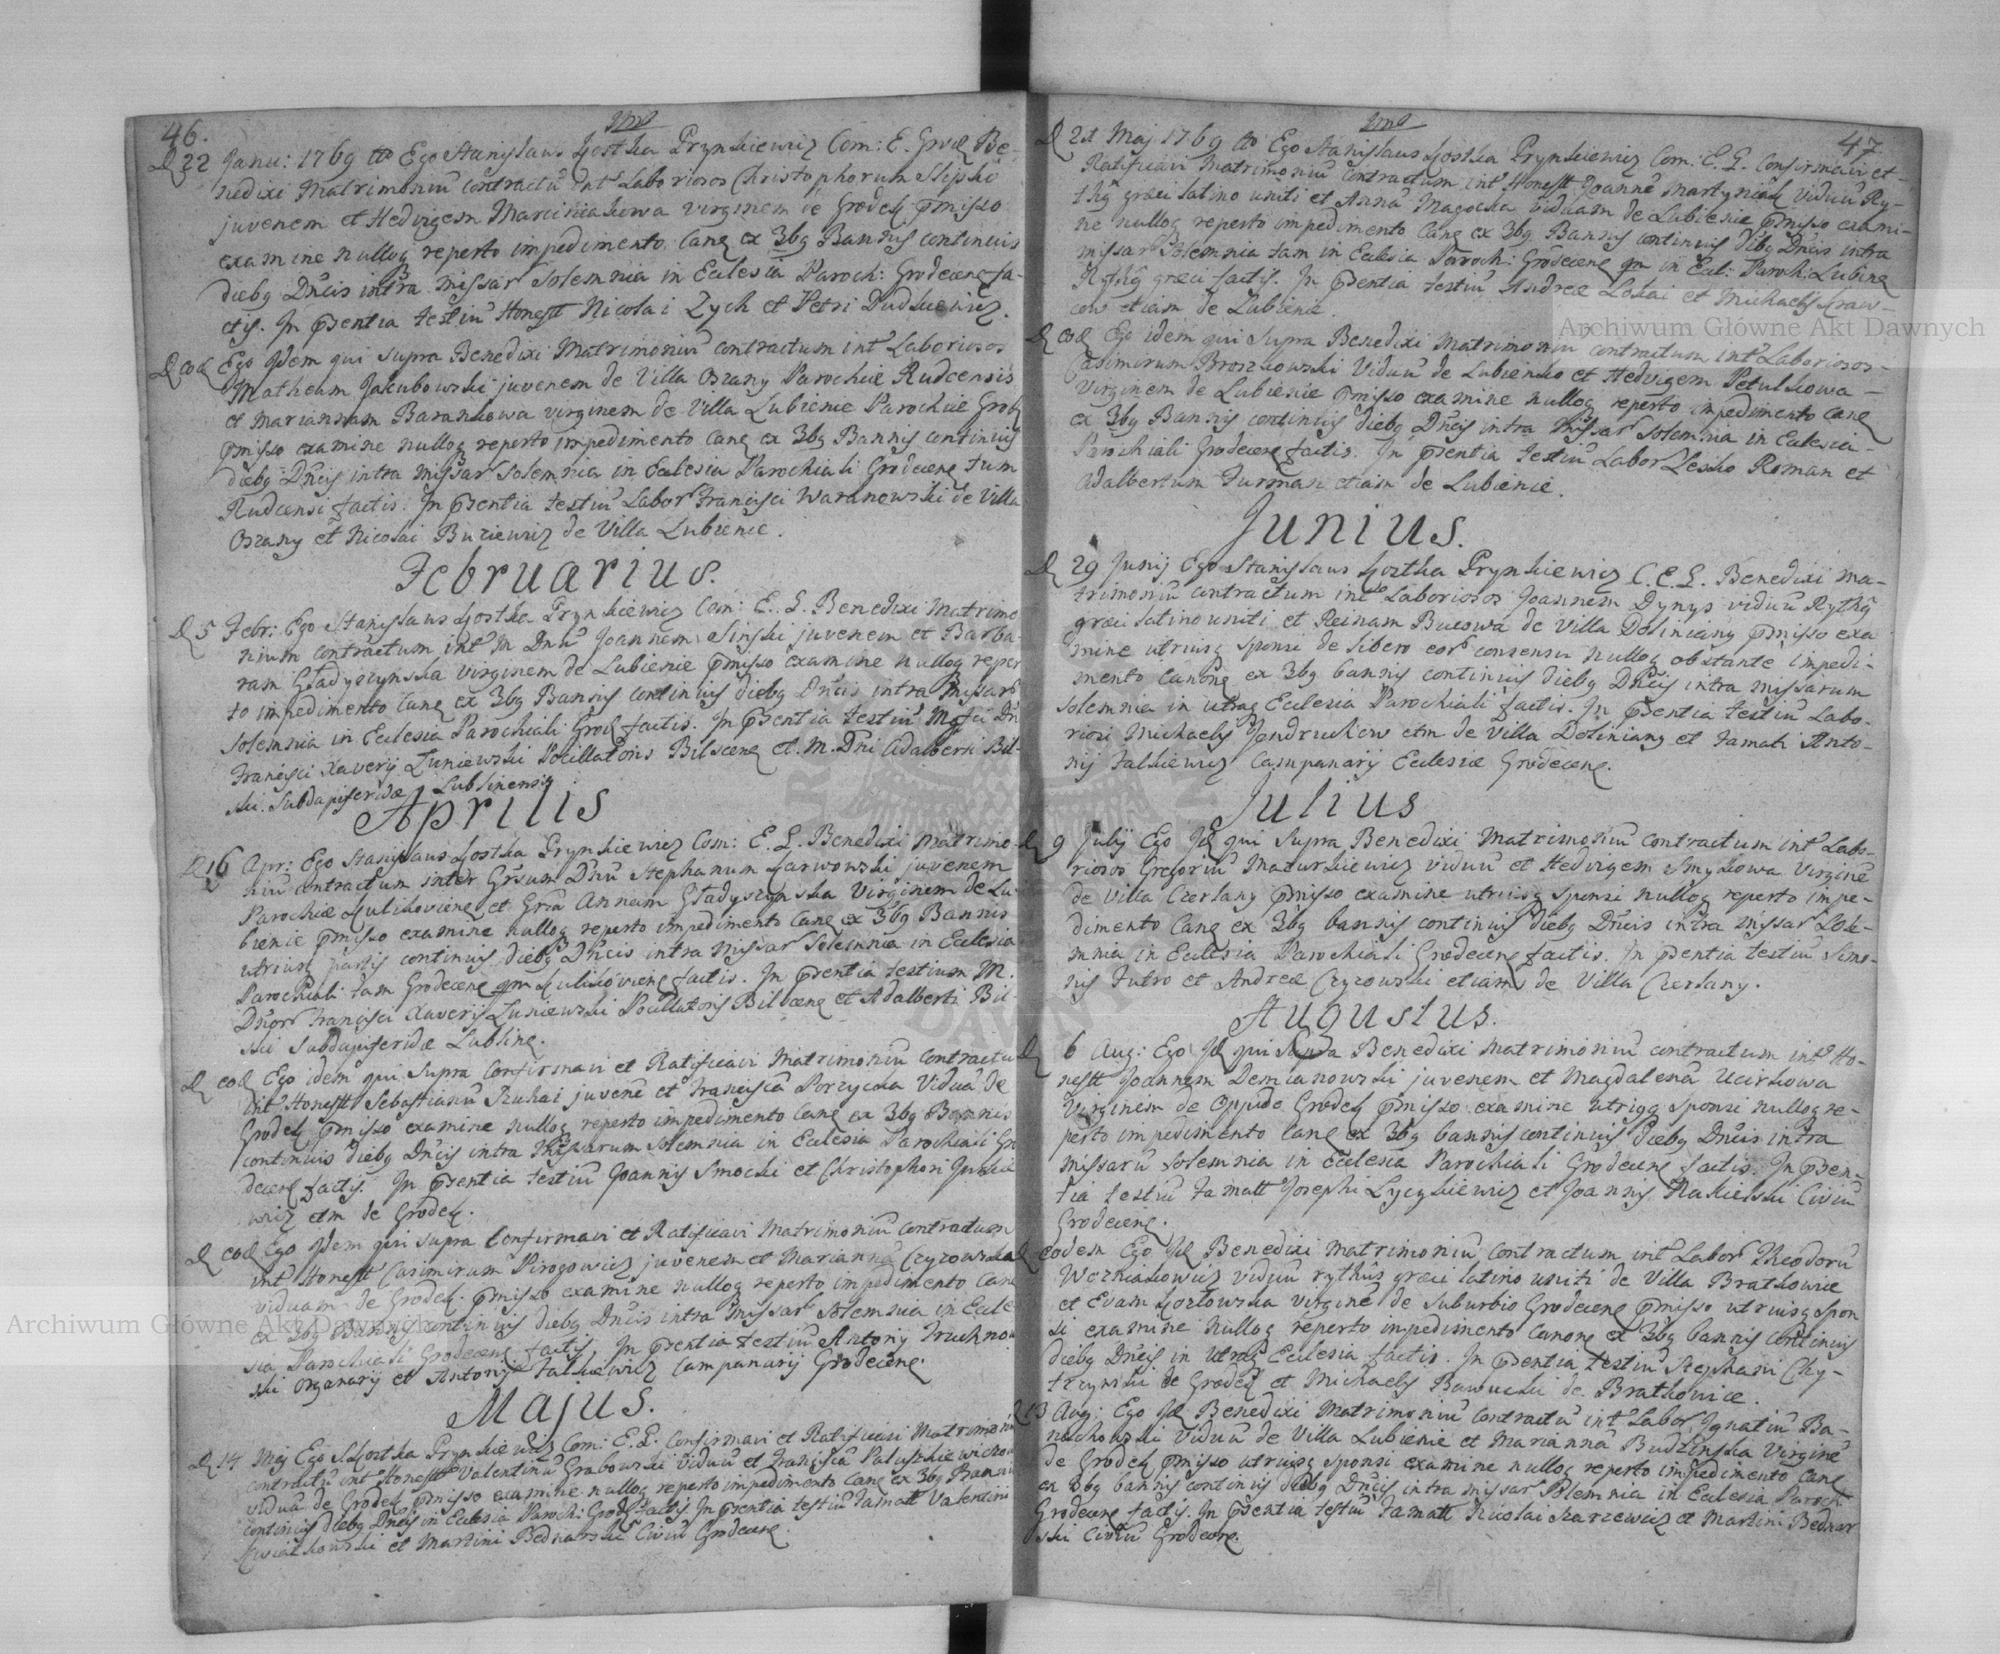 46.
D 22 Janu: 1769 tto Ego Stanislaus Hostka Prynkiewicz Com: E. Grod Be-
nedixi Matrimoniu contractu int Laboriosos Christophorum Slipko
juvenem et Hedvigem Marciniakowa virginem de Grodek pmisso
examine nulloq reperto impedimento Canq ex 3bq Bannis continuis
diebq Dncis intra missar Solemnia in Eclesia Paroch: Grodecenq fa-
ctis. In psentia testiu Honest Nicolai Zych et Petri Dudkiewicz.
D eod Ego Idem qui supra Benedixi Matrimoniu contractum int Laboriosos
Matheam Jakubowski juvenem de Villa Oszany Parochiæ Rudcensis
et Mariannam Barankowa virginem de Villa Lubienie Parochiæ Grod
pmisso examine nulloq reperto impedimento Canq ex 3bq Bannis continuis
diebq Dncis intra missar Solemnia in Eclesia Parochiali Grodecenq tum
Rudcensi factis. In psentia testiu Labor Francisci Waranowski de Villa
Oszany et Nicolai Buziewicz de Villa Lubienie.
Februarius.
D 5 Febr: Ego Stanislaus Hostka Prynkiewicz Com: E. G. Benedixi Matrimo
nium contractum int M Dnu Joannem Sinski juvenem et Barba-
ram Gładyszynska virginem de Lubienie pmisso examine nulloq reper
to impedimento Canq ex 3bq Bannis continuis diebq Dncis intra Missar
Solemnia in Eclesia Parochiali Grod factis. In psentia testiu Mgfci Dn
Francisci Xaverij Zuniewski Pocillatoris Bilscenq et M. Dni Adalberti Bil-
ski Subdapiferidæ Lublinensis
Aprilis
D 16 Apr: Ego Stanislaus Hostka Prynkiewicz Com: E. G. Benedixi Matrimo-
niu contractum inter Grsum Dnu Stephanum Karwowski juvenem
Parochiæ Kulikoviene et Gram Annam Gładyszynska Virginem de Lu-
bienie pmisso examine nulloq reperto impedimento Canq ex 3bq Bannis
utriusq partis continuis diebq Dncis intra Missar Solemnia in Eclesia
Parochiali tam Grodecenq qm Kulikovienq factis. In psentia testium M.
Dnor Francisci Xaverij Zuniewski Pocillatoris Bilscenq et Adalberti Bil-
ski Subdapiferidæ Lublinq.
D eod Ego idem qui supra Confirmavi et Ratificavi Matrimoniu contractu
int Honest Sebastianu Rukai juvene et Francisca Porzycka Vidua de
Grodek pmisso examine nulloq reperto impedimento Canq ex 3bq Bannis
continuis diebq Dncis intra Missarum Solemnia in Eclesia Parochiali Gro
decenq factis. In psentia testiu Joannis Smocki et Christophori
wicz etm de Grodek.
D eod Ego Idem qui supra Confirmavi et Ratificavi Matrimoniu contractum
int Honest Casimirum Pirogowicz juvenem et Marianna Czyzowska
viduam de Grodek. pmisso examine nulloq reperto impedimento Canq
ex 3bq Bannis continuis diebq Dncis intra Missar Solemnia in Ecle
sia Parochiali Grodecenq factis. In psentia testiu Antonij Truchnow
ski Organarij et Antonij Falkiewicz Campanarij Grodecenq.
Majus.
D 14 Maj Ego S Hostka Prynkiewicz Com: E. G. Confirmavi et Ratificavi Matrimoniu
contractu int Honest Valentinu Grabowski viduu et Francisca Paluszkiewiczowa
vidua de Grodek pmisso examine nulloq reperto impedimento Canq ex 3bq Bannis
continuis diebq Dncis in Eclesia Paroch: Grod factis. In psentia testiu Famat Valentini
Kwiatkowski et Martini Bednarski Civiu Grodecenq.
47
D 21 Maj 1769 tto Ego Stanislaus Hostka Prynkiewicz Com: E. G. Confirmavi et-
Ratificavi Matrimoniu contractum int Honest Joanne Martyniak viduu Ry-
thq græci latino uniti et Anna Magocka viduam de Lubienie pmisso exami-
ne nulloq reperto impedimento Canq ex 3bq Bannis continuis diebq Dncis intra
missar Solemnia tam in Eclesia Paroch: Grodecenq qm in Ecl: Paroch: Lubinq
Rythq græci factis. In psentia testiu Andreæ Loskai et Michaelis Kraw-
cow etiam de Lubienie.
D eod Ego idem qui supra Benedixi Matrimoniu contractum int Laboriosos-
Casimirum Broszkowski Viduu de Lubienko et Hedvigem Petulkowa-
virginem de Lubienie pmisso examine nulloq reperto impedimento Canq
ex 3bq Bannis continuis diebq Dncis intra Missar Solemnia in Eclesia-
Parochiali Grodecenq factis. In psentia testiu Labor Lesko Roman et
Adalbertum Furman etiam de Lubienie.
Junius.
D 29 Junij Ego Stanislaus Hostka Prynkiewicz C. E. G. Benedixi ma-
trimoniu contractum int Laboriosos Joannem Dynys viduu Rythq
græci latino uniti et Reinam Bucowa de Villa Doliniany pmisso exa
mine utriusq sponsi de libero eor consensu nulloq obstante impedi-
mento Canonq ex 3bq bannis continuis diebq Dncis intra missarum
solemnia in utraq Eclesia Parochiali factis. In psentia testiu Labo-
riosi Michaelis Jendruckow etm de Villa Doliniany et Famati Anto-
nij Falkiewicz Campanarij Ecclesiæ Grodecenq.
Julius
D 9 Julij Ego Jd qui supra Benedixi Matrimoniu contractum int Labo-
riosos Gregoriu Mazurkiewicz viduu et Hedvigem Smykowa Virgine
de Villa Czerlany pmisso examine utriusq sponsi nulloq reperto impe-
dimento Canq ex 3bq bannis continuis diebq Dncis intra missar Sole-
mnia in Eclesia Parochiali Grodecenq factis. In psentia testiu Simo-
nis Futro et Andreæ Czyzowski etiam de Villa Czerlany.
Augustus.
D 6 Aug: Ego Jd qui supra Benedixi Matrimoniu contractum int Ho-
nest Joannem Demianowski juvenem et Magdalena Ucirkowa
Virginem de Oppido Grodek pmisso examine utriqq sponsi nulloq re-
perto impedimento Canq ex 3bq bannis continuis diebq Dncis intra
missaru solemnia in Eclesia Parochiali Grodecenq factis. In psen-
tia testiu Famatt Josephi Lyczkiewicz et Joannis Rakielski Civiu
Grodecenq.
D eodem Ego Jd Benedixi Matrimoniu contractum int Labor Theodoru
Wozniakowicz viduu rythus græci latino uniti de Villa Bratkowice
et Evam Kozłowska virgine de Suburbio Grodecenq pmisso utriusq spon
si examine nulloq reperto impedimento Canonq ex 3bq bannis continuis
diebq Dncis in utraq Eclesia factis. In psentia testiu Stephani Chy-
trzynski de Grodek et Michaelis Bawucki de Bratkowice.
D 13 Aug: Ego Jd Benedixi Matrimoniu contractu int Labor Ignatiu Ba-
nachowski Viduu de Villa Lubienie et Marianna Budzinska virgine
de Grodek pmisso utriusq sponsi examine nulloq reperto impedimento Canq
ex 3bq bannis continuis diebq Dncis intra missar Solemnia in Eclesia Paroch
Grodecenq factis. In psentia testiu Famatt Nicolai Karzewicz et Martini Bednar
ski Civiu Grodecenq.
Archiwum Główne Akt Dawnych
Archiwum Główne Akt Dawnych